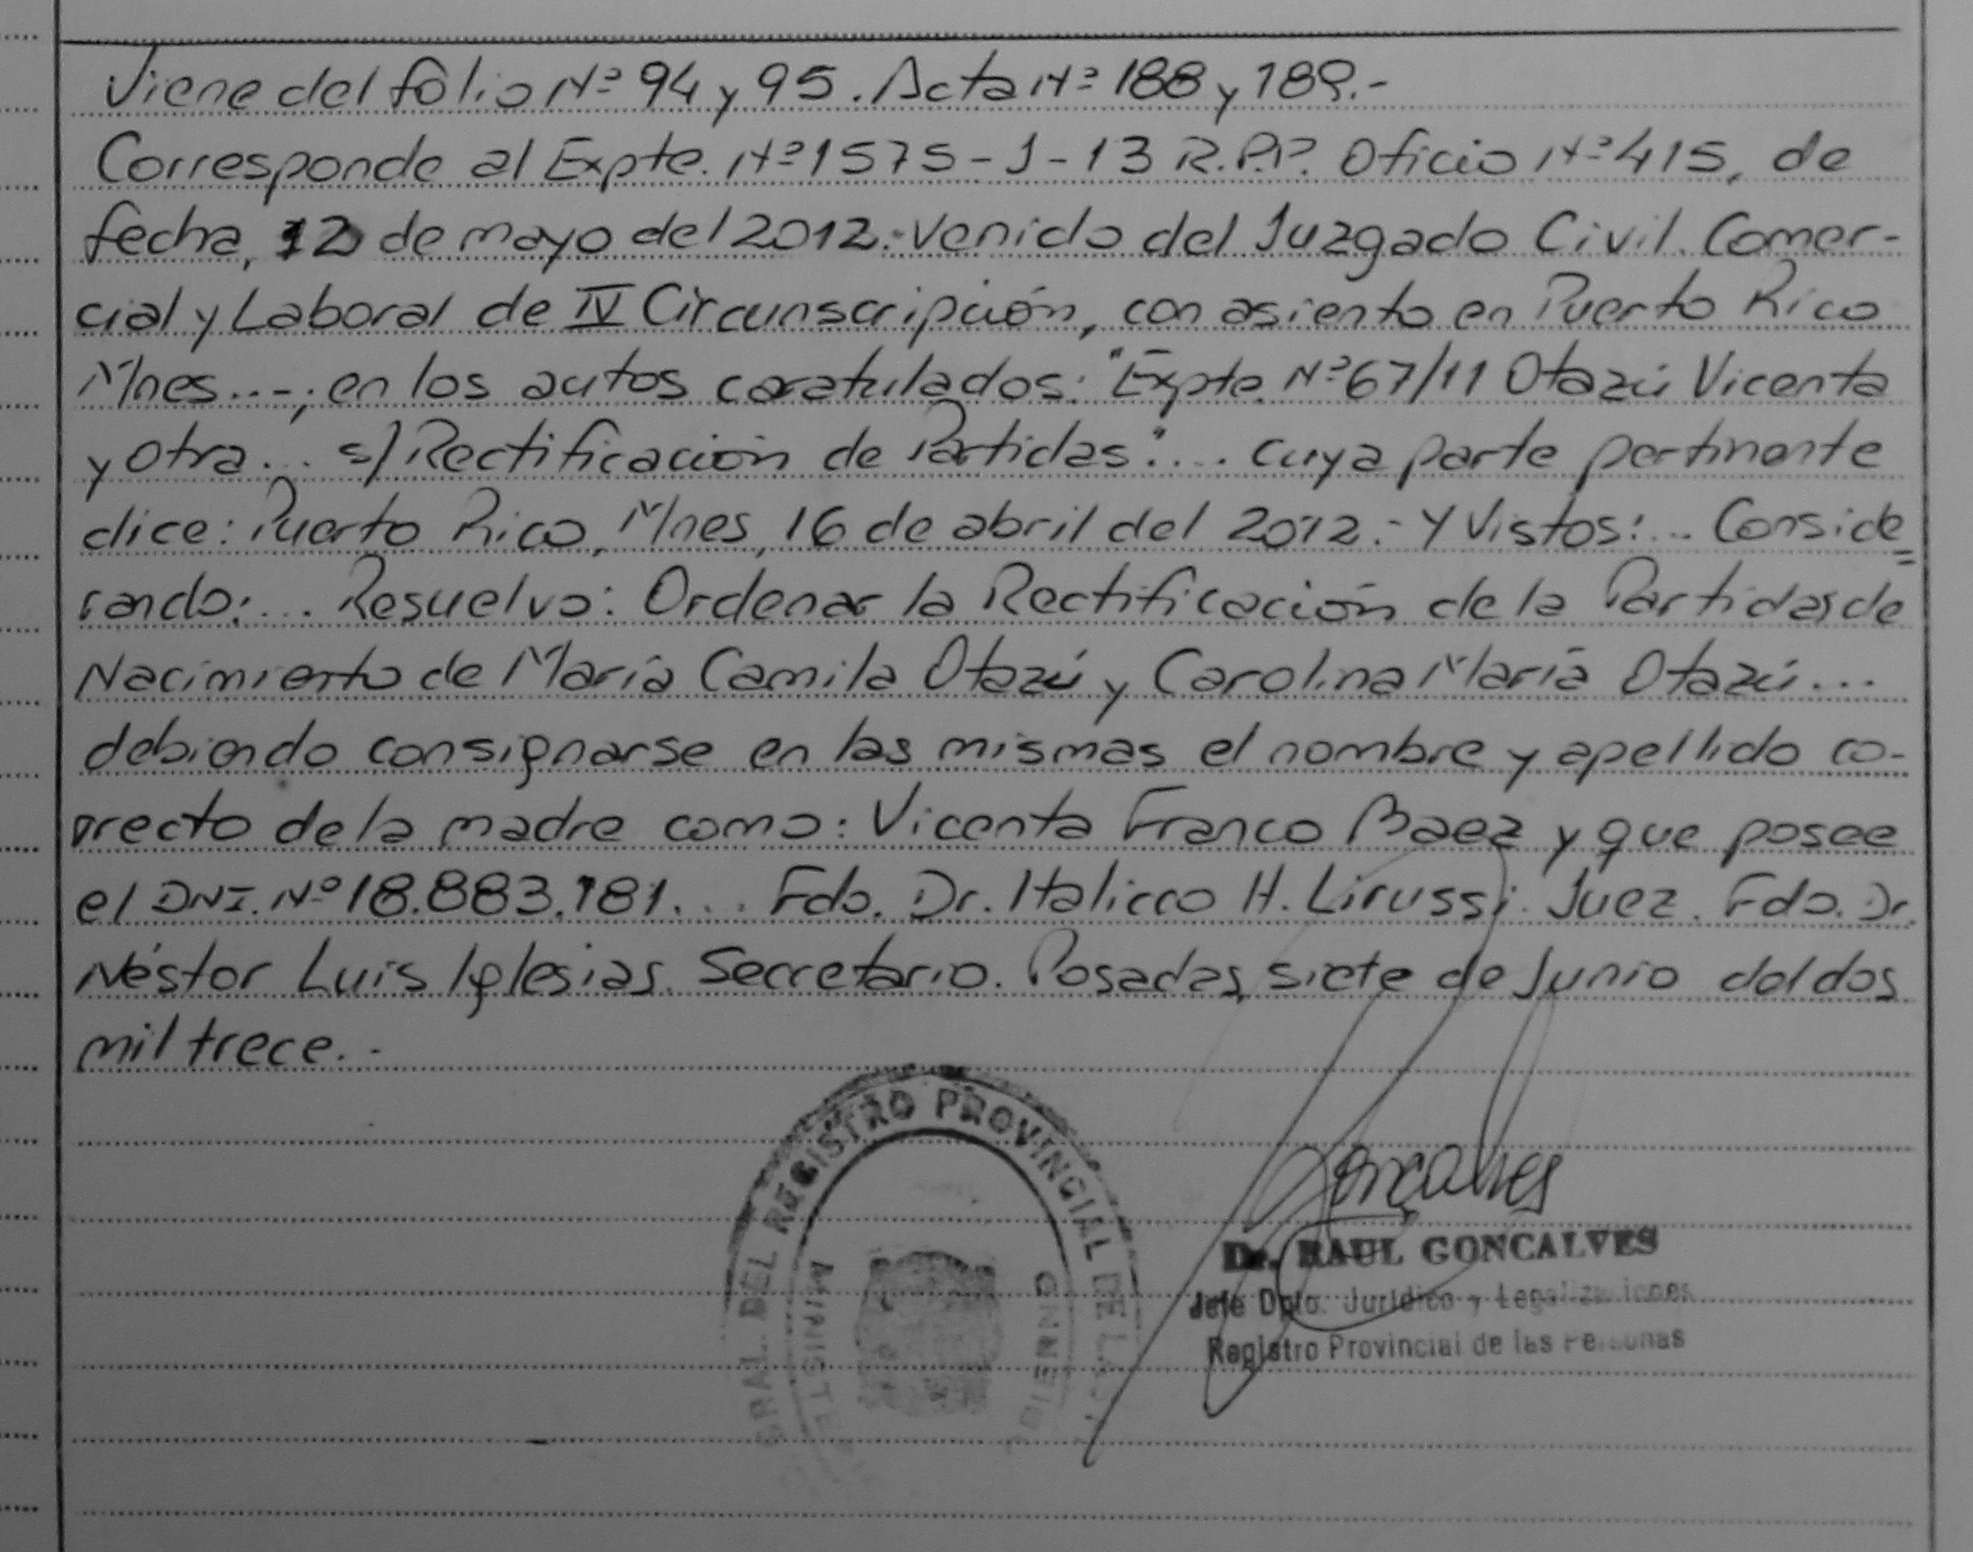 Viene del folio Nº 94 y 95. Acta Nº 188 y 189.-
Corresponde al Expte. Nº 1575-J-13 R.P.P. Oficio Nº 415, de
fecha, 12 de mayo del 2012.- Venido del Juzgado Civil. Comer-
cial y Laboral de IV Circunscripción, con asiento en Puerto Rico
Mnes...-; en los autos caratulados: "Expte. Nº 67/11 Otazú Vicenta
y Otra... s/ Rectificación de Partidas".... cuya parte pertinente
dice: Puerto Rico, Mnes, 16 de abril del 2012.- Y Vistos:... Conside=
rando:... Resuelvo: Ordenar la Rectificación de la Partidas de
Nacimiento de María Camila Otazú y Carolina María Otazú...
debiendo consignarse en las mismas el nombre y apellido co-
rrecto de la madre como: Vicenta Franco Baez y que posee
el DNI. Nº 18.883.181.... Fdo. Dr. Italicco H. Lirussi. Juez. Fdo. Dr.
Néstor Luis Iglesias. Secretario. Posadas, siete de Junio del dos
mil trece.-
GRAL. DEL REGISTRO PROVINCIAL DE LAS
Goncalves
Dr. RAUL GONCALVES
Jefe Dpto. Jurídico y Legalizaciones
Registro Provincial de las Personas